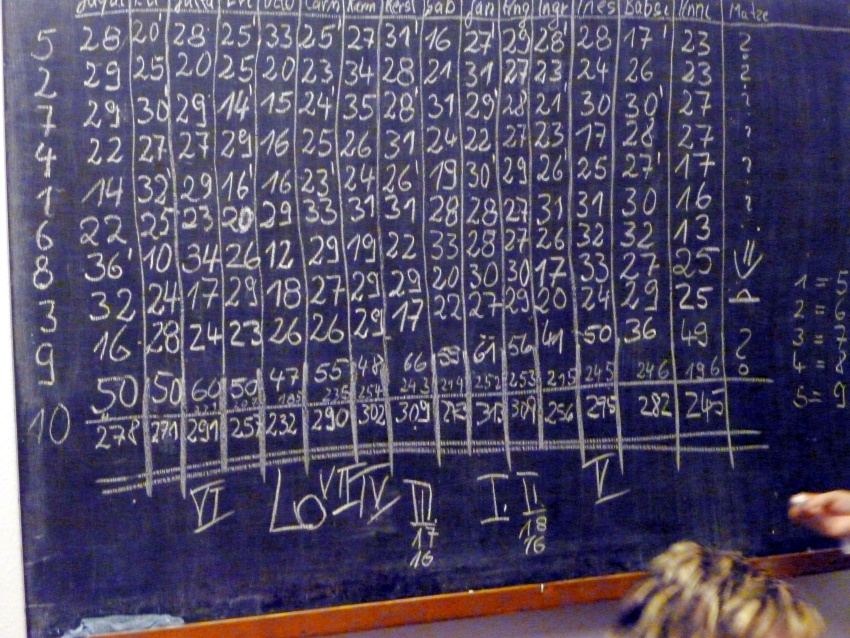 Jan Ines Babsi Matze
5 28 20' 28 25' 33 25' 27 31' 16 27' 29 28' 28 17' 23 ?
2 29 25 20 25 20 23 34 28 21 31 27 23 24 26 23 ?
7 29 30' 29' 14' 15 24' 35 28' 31 29' 28 21' 30 30' 27 ?
4 22 27 27 29 16 25 26 31 24 22 27 23 17 28 27 ?
1 14 32' 29 16' 16 23' 24 26' 19 30' 29 26' 25 27' 17 ?
6 22 25 23 20 29 33 31 31 28 28 27 31 31 30 16 ?
8 36' 10 34 26 12 29 19 22 33 28 27 26 32 32 13
3 32 24 17 29 18 27 29 29 20 30 30 17 33 27 25
9 16 28 24 23 26 26 29 17 22 27 29 20 24 29 25
10 50 50 60 50 47 55 48 66 55 61 56 41 50 36 49
243 252 253 215 245 246 196
278 271 291 257 232 290 302 309 313 309 256 282 245
VI Lo VII IV III I. II V
17 18
16 16
1 = 5
2 = 6
3 = 7
4 = 8
5 = 9